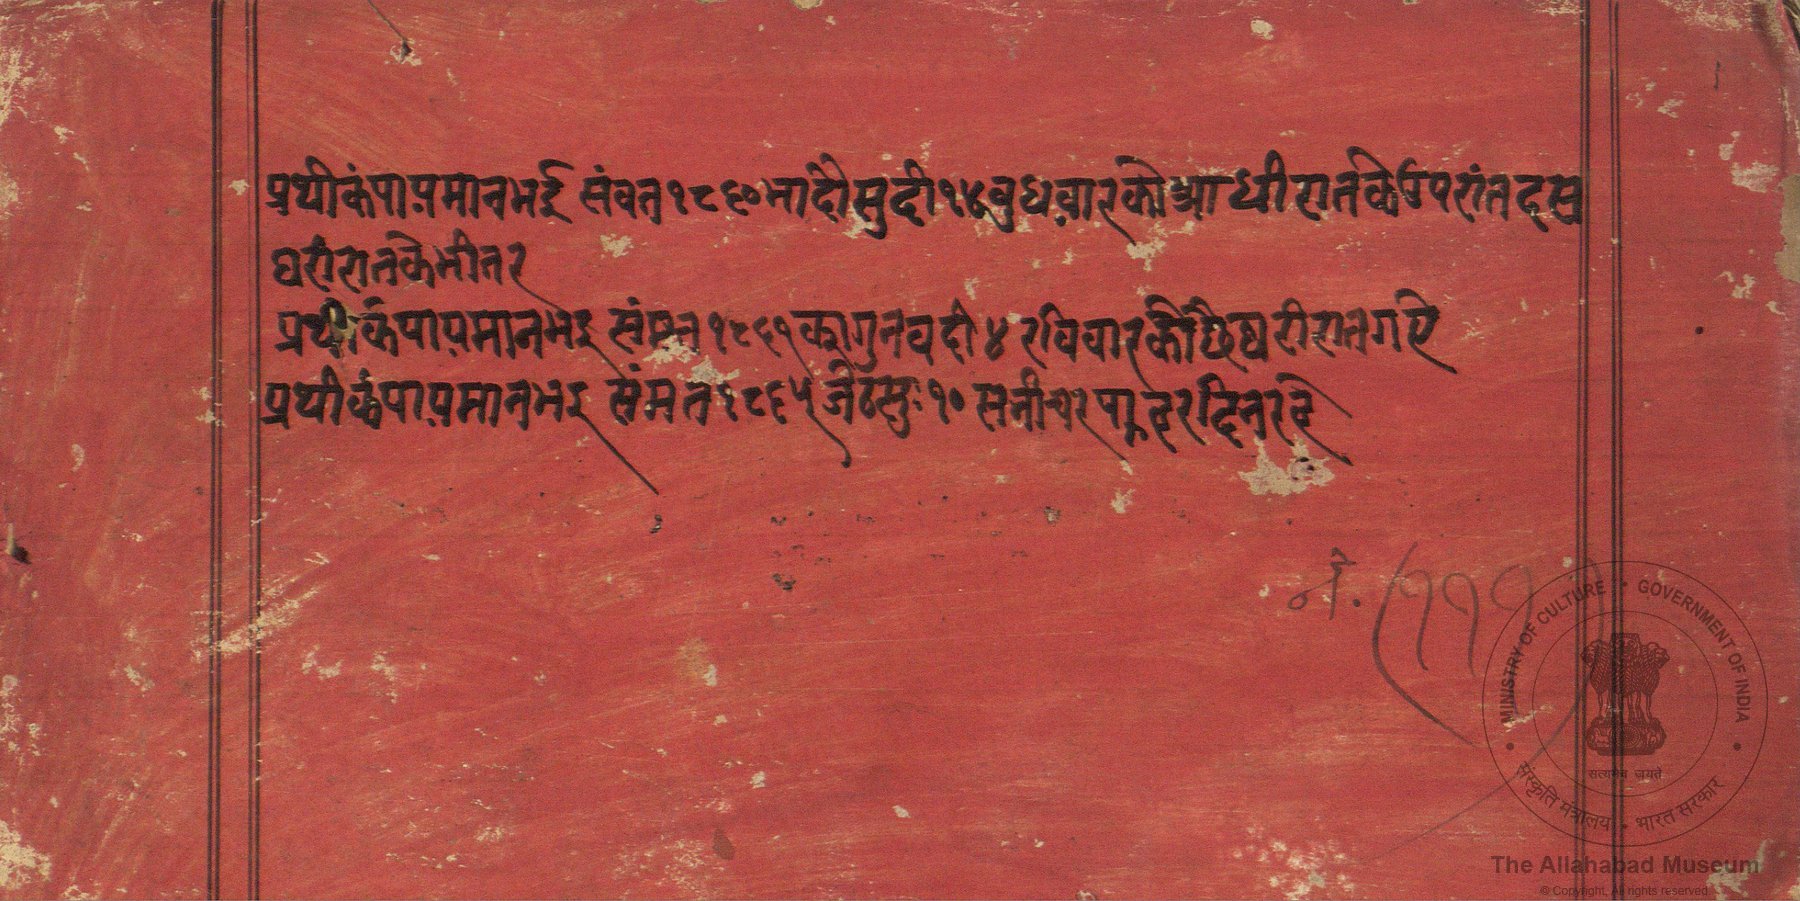 प्रथीकंपायमानभई संवत१८६०भादौसुदी१४बुधवारकोआधीरातकेउपरांतदसु
घरीरातकेभीतर
प्रथीकंपायमानभइ संमत१८६१फागुनवदी४ रविवारकौछैघरीरातगऐ
प्रथीकंपायमानभइ संमत१८६५जेठसुः१० सनीचर
नं. १११
MINISTRY OF CULTURE • GOVERNMENT OF INDIA
सत्यमेव जयते
संस्कृति मंत्रालय • भारत सरकार
The Allahabad Museum
© Copyright, All rights reserved